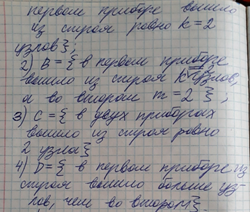 первом приборе вышло
из строя равно k=2
узлов};
2) B={в первом приборе
вышло из строя k узлов,
а во втором m=2};
3) C={в двух приборах
вышло из строя равно
2 узла}
4) D={в первом приборе из
строя вышло больше уз-
лов, чем во втором}